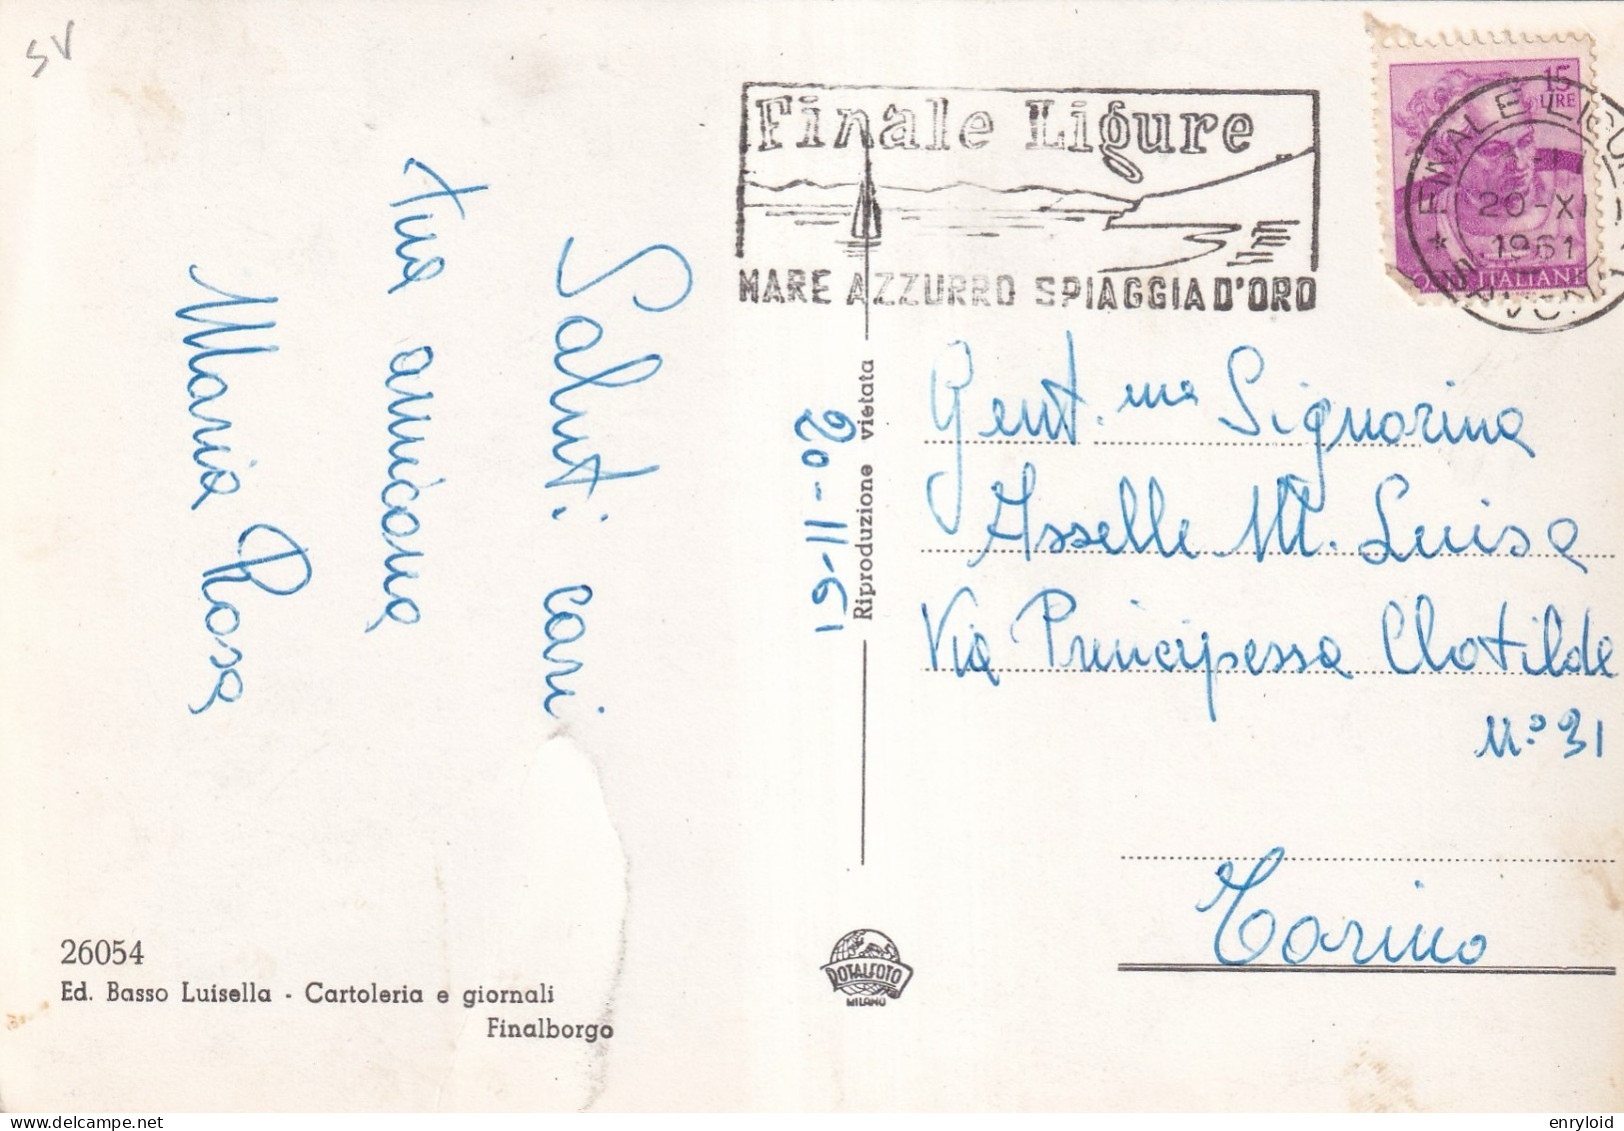 SV
Finale Ligure
MARE AZZURRO SPIAGGIA D'ORO
15
LIRE
ITALIANE
FINALE LIGURE
20-XI
1961
Saluti cari
tua amicona
Maria Rosa
20-11-61
Riproduzione vietata
Gent.ma Signorina
Asselle M. Luisa
Via Principessa Clotilde
N.º 31
Torino
26054
Ed. Basso Luisella - Cartoleria e giornali
Finalborgo
ROTALFOTO
MILANO
enryloid | Delcampe.net